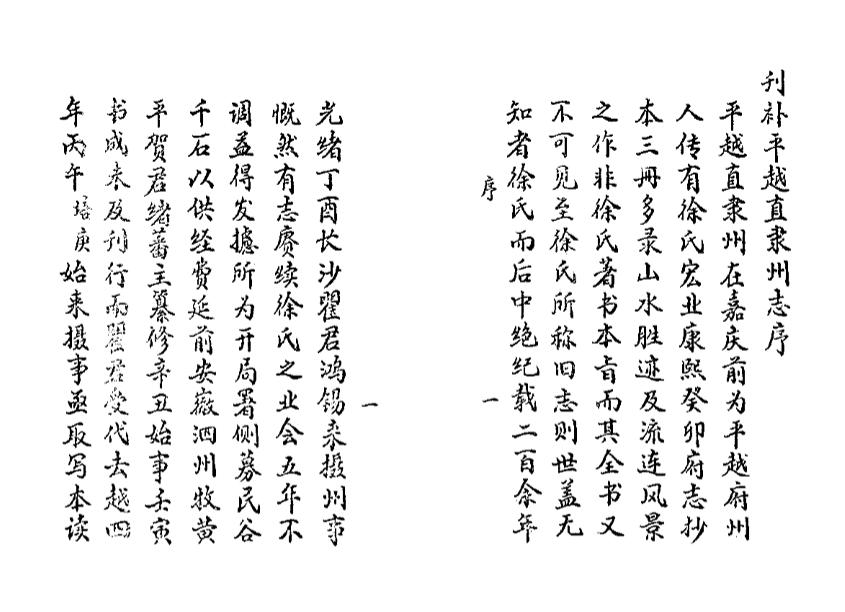 刊补平越直隶州志序
平越直隶州在嘉庆前为平越府州
人传有徐氏宏业康熙癸卯府志抄
本三册多录山水胜迹及流连风景
之作非徐氏著书本旨而其全书又
不可见至徐氏所称旧志则世盖无
知者徐氏而后中绝纪载二百余年
序
一
一
光绪丁酉长沙瞿君鸿锡来摄州事
慨然有志赓续徐氏之业会五年不
调益得发摅所为开局署侧募民谷
千石以供经费延前安徽泗州牧黄
平贺君绪蕃主纂修辛丑始事壬寅
书成未及刊行而瞿君受代去越四
年丙午培庚始来摄事亟取写本读